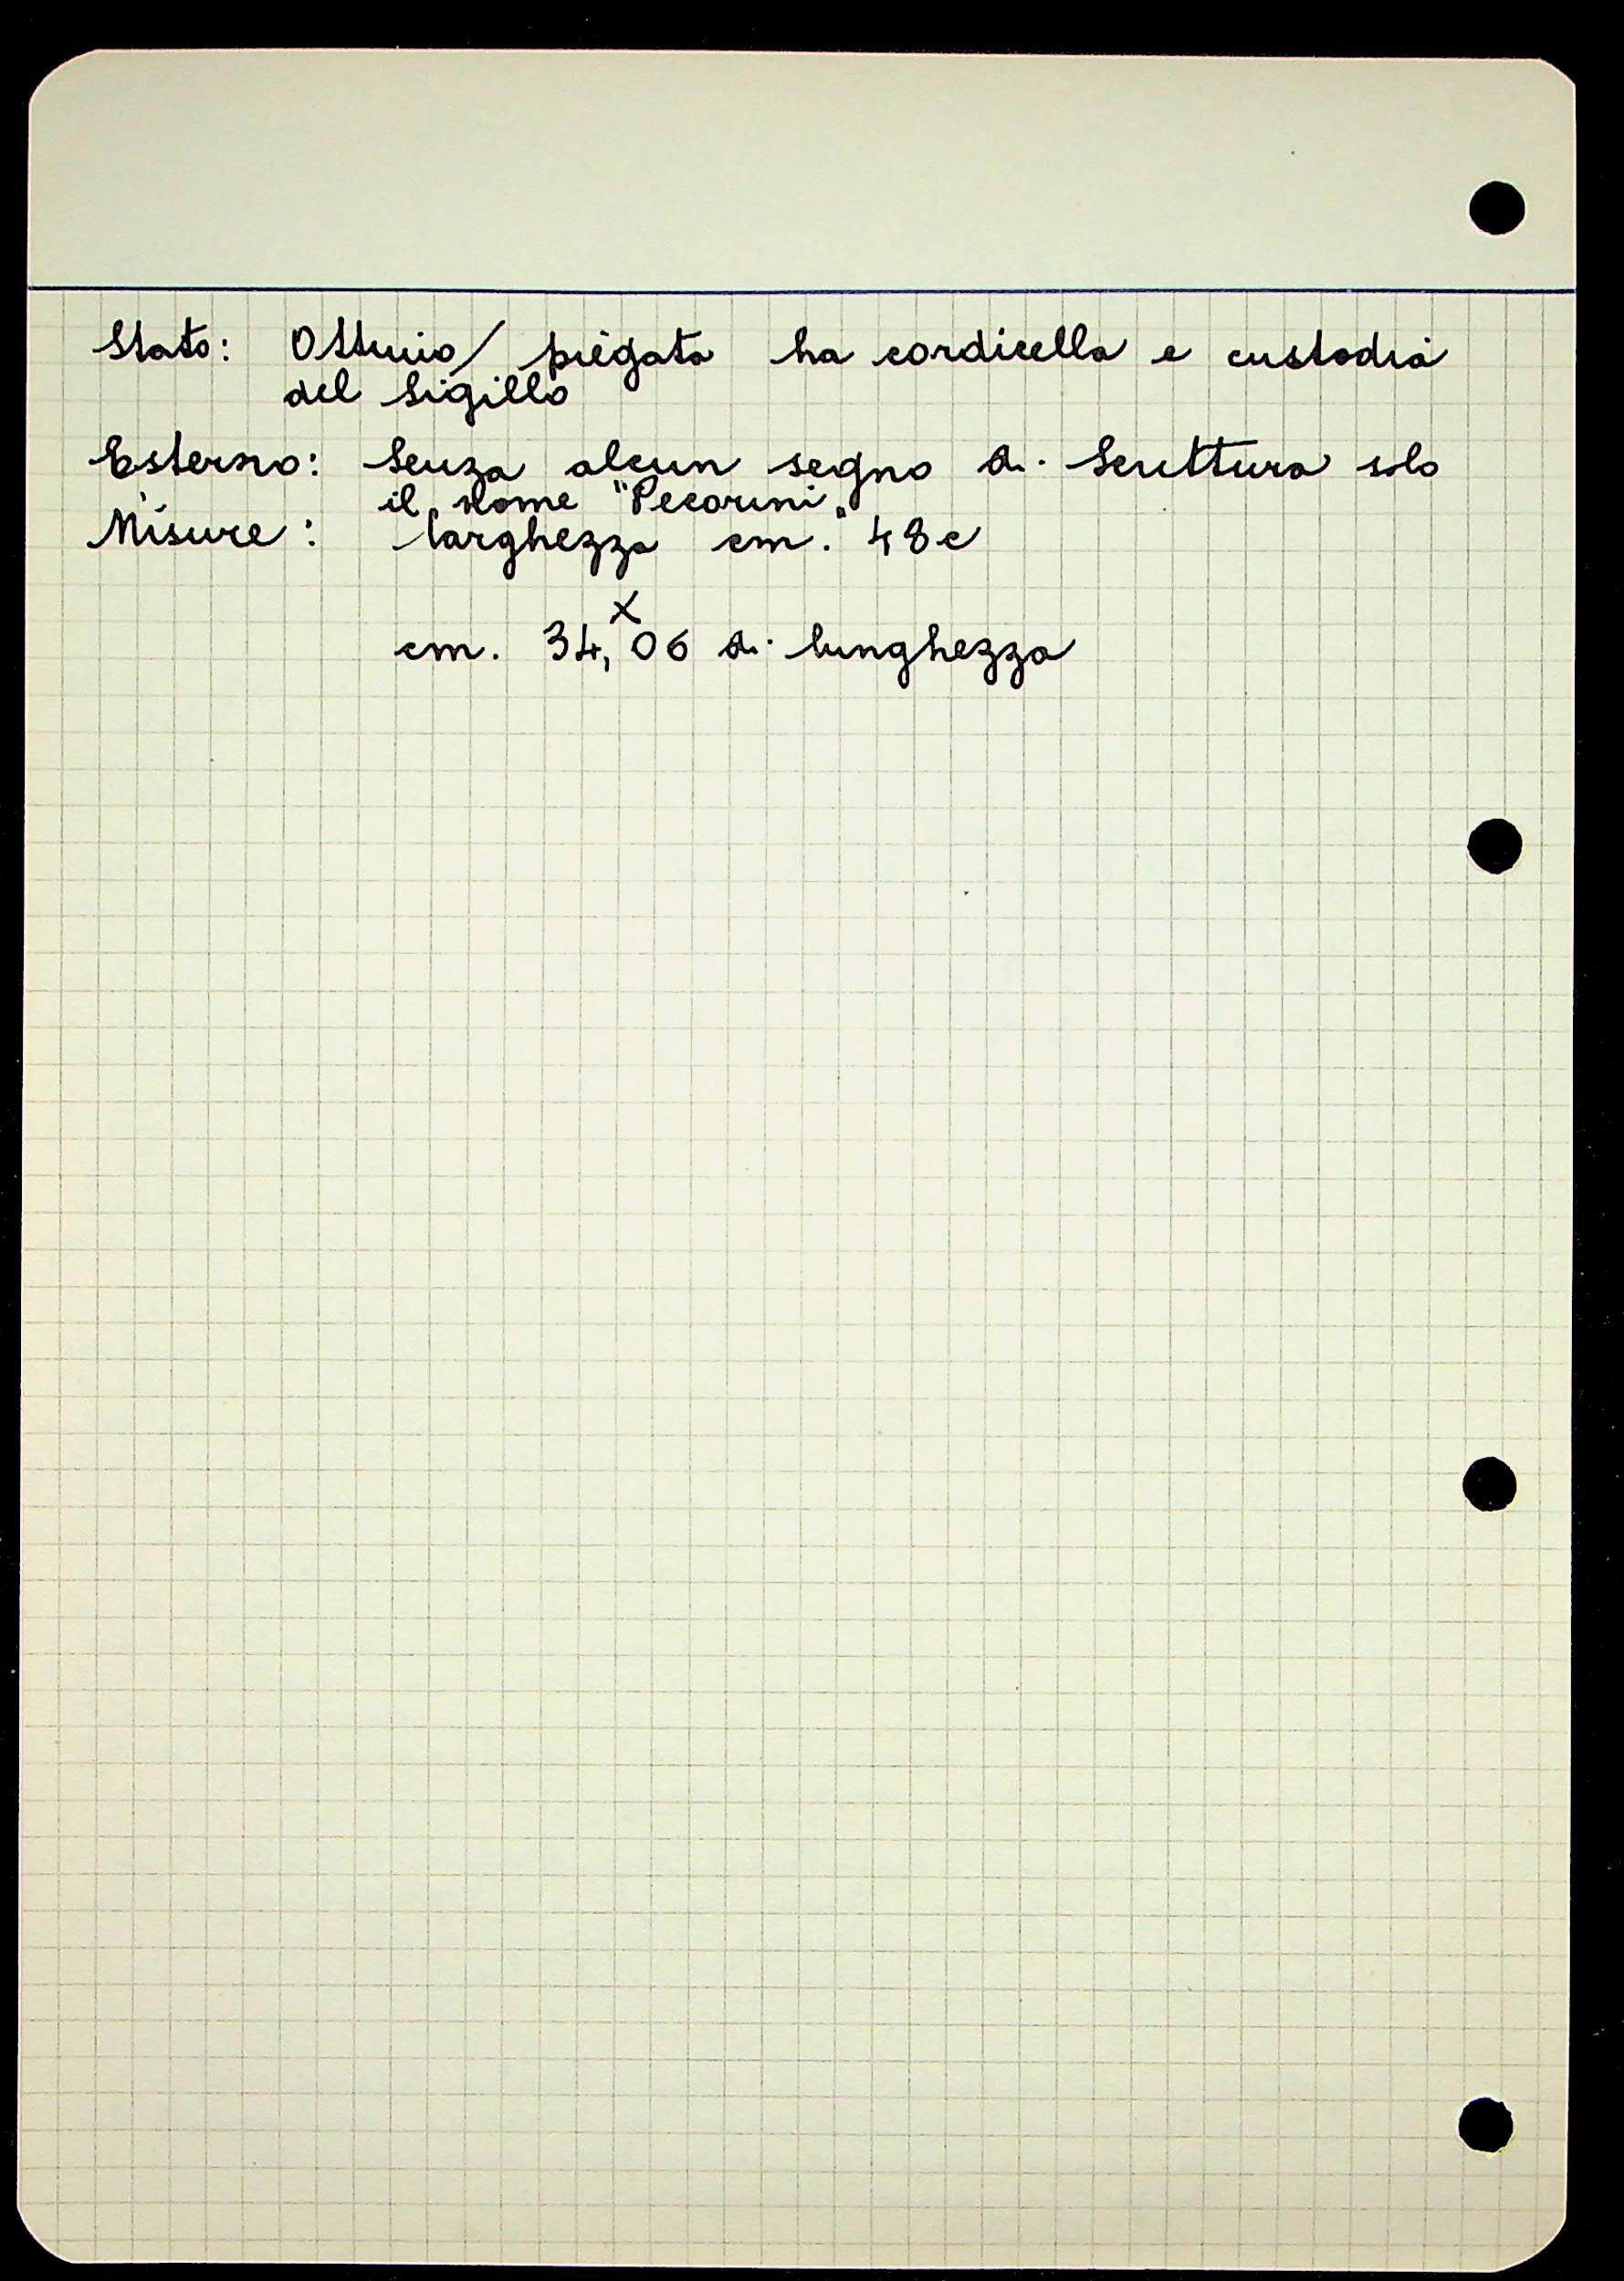 Stato: Ottimo/ piegata ha cordicella e custodia
del sigillo
Esterno: Senza alcun segno di Scrittura solo
il nome "Pecorini"
Misure: larghezza cm. 48 e
x
cm. 34,06 di lunghezza